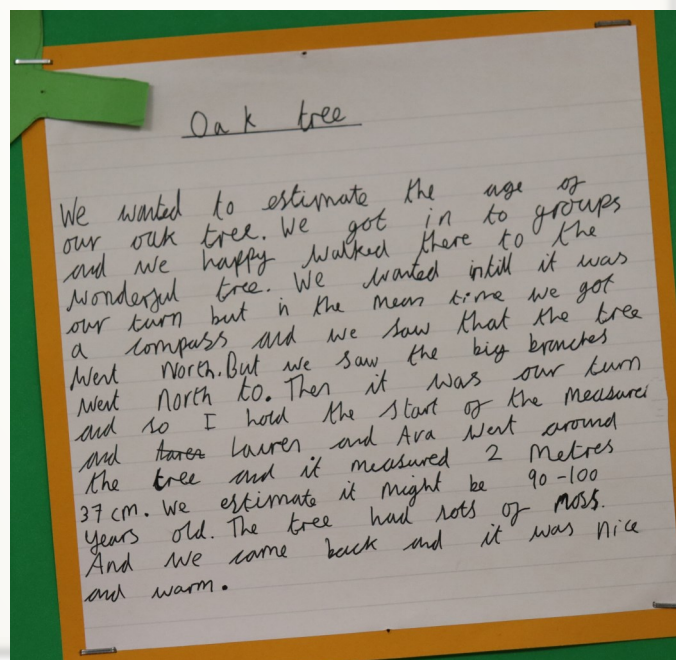 Oak tree
We wanted to estimate the age of
our oak tree. We got in to groups
and we happy walked there to the
wonderful tree. We wanted intill it was
our turn but in the mean time we got
a compass and we saw that the tree
went North. But we saw the big branches
went north to. Then it was our turn
and so I hold the start of the measurei
and Lauren and Ava went around
the tree and it measured 2 Metres
37 cm. We estimate it might be 90-100
years old. The tree had lots of moss.
And we came back and it was nice
and warm.